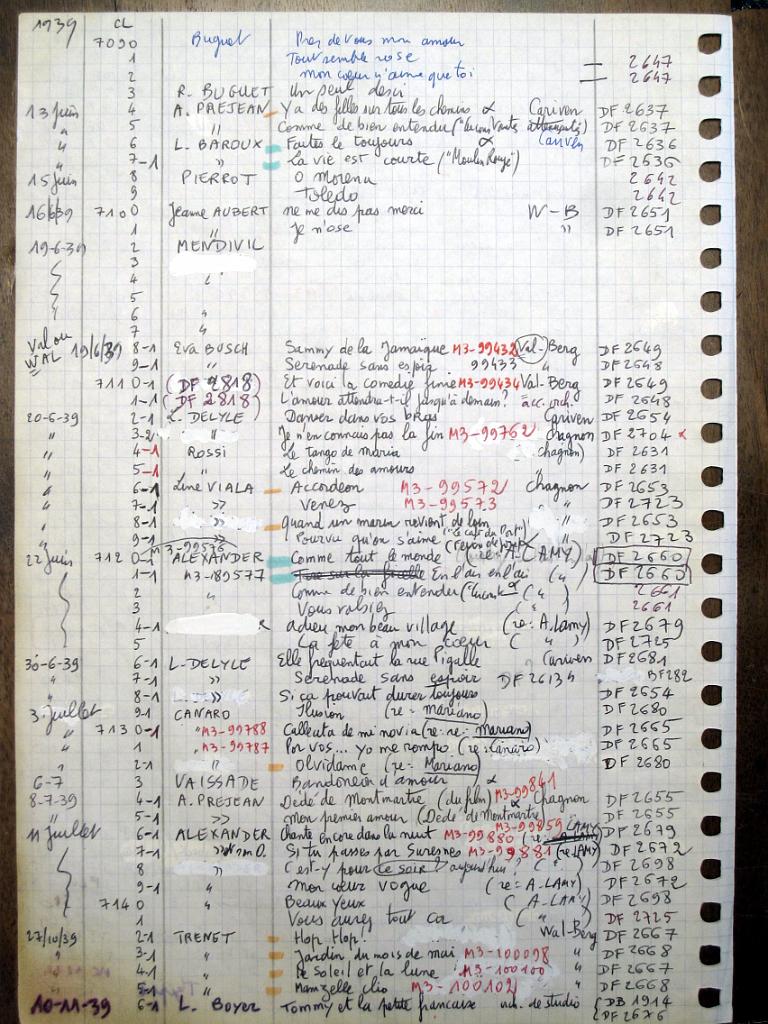 1939 CL
7090 Buguet Près de vous mon amour
1 Tout semble rose = 2647
2 mon cœur n'aime que toi 2647
3 R. BUGUET Un seul désir
13 juin 4 A. PREJEAN Y a des filles sur tous les chemins α Cariven DF 2637
" 5 " Comme de bien entendu DF 2637
" 6 L. BAROUX Faites le toujours α Cariven DF 2636
" 7-1 " La vie est courte ("Moulin Rouge") DF 2636
15 juin 8 PIERROT O Morena 2642
9 Toledo 2642
16/6/39 7100 Jeanne AUBERT ne me dis pas merci W-B DF 2651
1 " Je n'ose " DF 2651
19-6-39 2 MENDIVIL
3
4 "
5
6 "
7 "
Val ou WAL 19/6/39 8-1 Eva BUSCH Sammy de la Jamaïque M3-99432 Val-Berg DF 2649
9-1 " Serenade sans espoir 99433 " DF 2648
7110-1 (DF 2818) Et voici la comedie finie M3-99434 Val-Berg DF 2649
1-1 (DF 2818) L'amour attendra-t-il jusqu'à demain? acc. orch. DF 2648
20-6-39 2-1 L. DELYLE Danser dans vos bras Cariven DF 2654
" 3-2 Je n'en connais pas la fin M3-99762 Chagnon DF 2704 x
" 4-1 Rossi Le tango de maria Chagnon) DF 2631
" 5-1 Le chemin des amours " DF 2631
" 6-1 Line VIALA Accordeon M3-99572 Chagnon DF 2653
" 7-1 " Venez M3-99573 " DF 2723
" 8-1 " quand un marin revient de loin " DF 2653
" 9-1 " Pourvu qu'on s'aime ("le café du Port") " DF 2723
M3-99576
22 juin 7120-1 ALEXANDER Comme tout le monde (re: A. LAMY) DF 2660
1-1 M3-189577 En l'air en l'air ( " ) DF 2660
2 " Comme de bien entendu α ( " ) 2661
3 Vous valsiez ( " ) 2661
4-1 adieu mon beau village (re: A. Lamy) DF 2679
5 La fête à mon cœur ( " ) DF 2725
30-6-39 6-1 L. DELYLE Elle frequentait la rue Pigalle Cariven DF 2681
" 7-1 " Serenade sans espoir DF 26134 BF282
" 8-1 " Si ça pouvait durer toujours DF 2654
3 juillet 9-1 CANARO Ilusion (re: mariano) DF 2680
" 7130-1 "M3-99788 Calleuta de mi novia (re: re: Mariano) DF 2665
" 1 "M3-99787 Por vos... yo me rompo (re: Canaro) DF 2665
2-1 " Olvidame (re: Mariano) DF 2680
6-7 3 VAISSADE Bandonéon d'amour α
8-7-39 4-1 A. PREJEAN Dédé de Montmartre (du film) M3-99841 Chagnon DF 2655
" 5-1 " mon premier amour (Dédé de Montmartre) " DF 2655
11 juillet 6-1 ALEXANDER Chante encore dans la nuit M3-99880 M3-99859 LAMY DF 2679
7-1 " Si tu passes par Suresnes M3-99881 (re LAMY) DF 2672
8 " C'est-y pour ce soir? aujourd'hui? ( " ) DF 2698
9-1 " Mon cœur vogue (re: A. LAMY) DF 2672
7140 " Beaux Yeux ( A. LAMY) DF 2698
1 Vous aurez tout ça ( " ) DF 2725
27/10/39 2-1 TRENET Hop Hop! Wal-Berg DF 2667
" 3-1 " Jardin du mois de mai M3-100098 " DF 2668
4-1 " Le Soleil et la lune M3-100100 " DF 2667
5-1 " Mamzelle Clio M3-100102 " DF 2668
10-11-39 6-1 L. Boyer Tommy et la petite française orch. de studio DB 1914
DF 2676